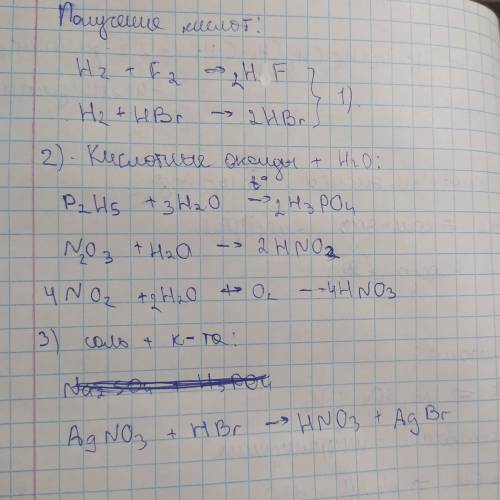 Получение кислот:
H2 + F2 → 2HF } 1).
H2 + HBr → 2HBr
2). Кислотные оксиды + H2O:
P2H5 + 3H2O t°→ 2H3PO4
N2O3 + H2O → 2HNO2
4NO2 + 2H2O + O2 → 4HNO3
3) соль + к-та:
Na2SO4 + H3PO4
AgNO3 + HBr → HNO3 + AgBr